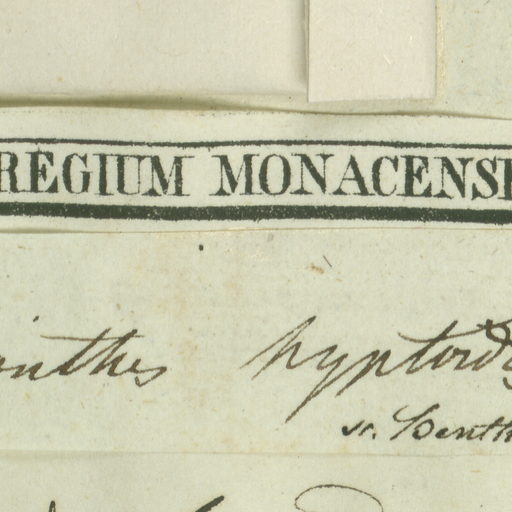 REGIUM MONACENSE
inthes hyptoid
sr. Benth